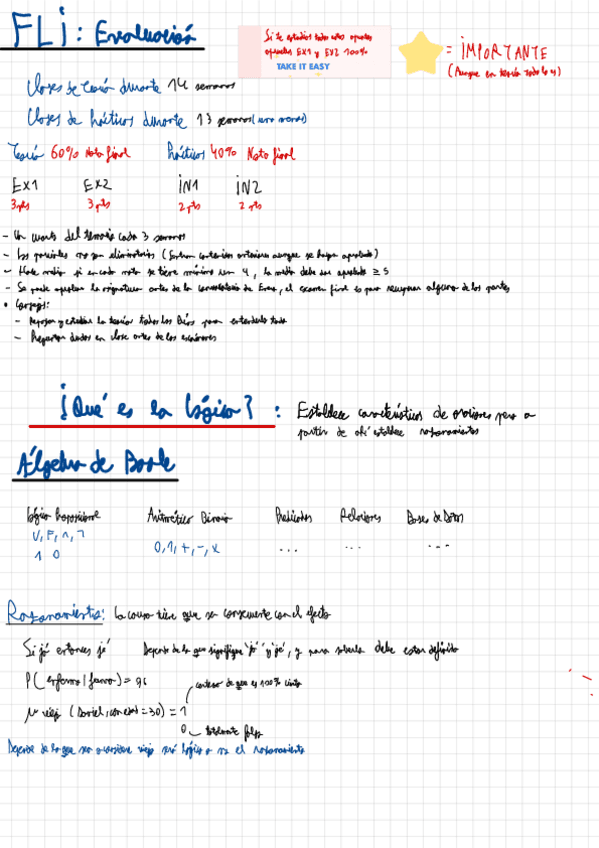 FLI: Evaluación
Si te estudias todo estos apuntes
apruebas EX1 y EX2 100%
TAKE IT EASY
= IMPORTANTE
(Aunque en teoría todo lo es)
Clases de teoría durante 14 semanas
Clases de Prácticas durante 13 semanas
Teoría 60% Nota final Prácticas 40% Nota final
EX1 EX2 IN1 IN2
3 pts 3 pts 2 pts 2 pts
- Un cuarto del temario cada 3 semanas
- Los parciales no son eliminatorios (Entran contenidos anteriores aunque se hayan aprobado)
- Hace media si en cada nota se tiene mínimo un 4, la media debe ser aprobado ≥ 5
- Se puede aprobar la asignatura antes de la convocatoria de Enero, el examen final es para recuperar alguna de las partes
• Consejos:
- Repasar y estudiar la teoría todos los días para entenderlo todo
- Preguntar dudas en clase antes de los exámenes
¿Qué es la lógica? : Establece características de oraciones para a
partir de ahí establecer razonamientos
Álgebra de Boole
Lógica Proposicional Aritmética Binaria Predicados Relaciones Bases de Datos
V, F, ∧, ¬ 0, 1, +, -, x ... ... ...
1 0
Razonamiento: La causa tiene que ser consecuente con el efecto
Si jo entonces je Depende de lo que signifique "jo" y "je", y para saberlo debe estar definido
P(enfermo|fumo) = 
certeza de que es 100% cierto
μ viejo (Daniel, con edad = 30) = 1
0 totalmente falso
Depende de lo que se considere viejo será lógico o no el razonamiento